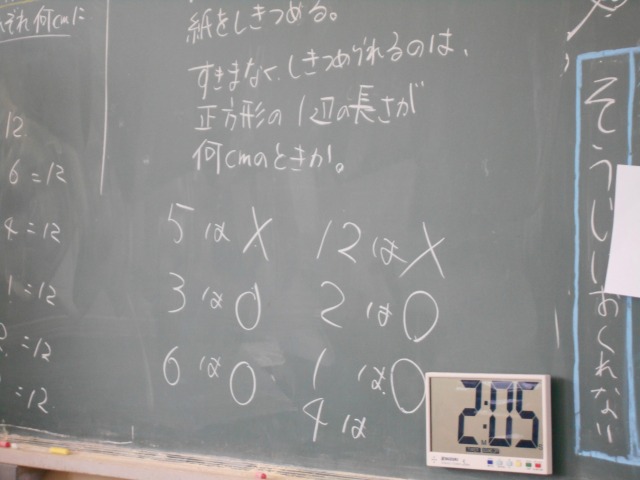 ぞれ何cmに
12
6=12
4=12
1=12
=12
=12
紙をしきつめる。
すきまなく、しきつめられるのは、
正方形の1辺の長さが
何cmのときか。
5は×
12は×
3は○
2は○
6は○
1は○
4は
そうじにおくれない
2:05